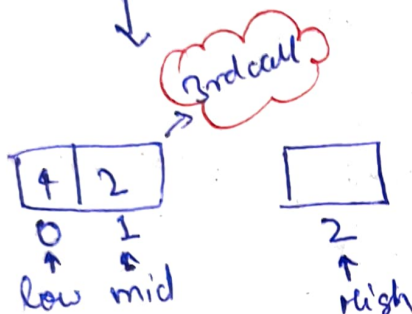 3rd call
4 2
0 1 2
low mid High